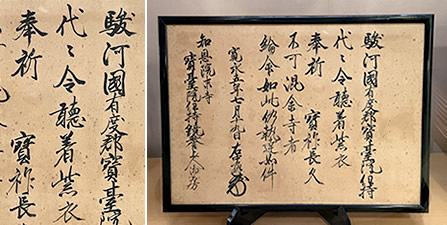 駿河國有度郡寶臺院
代々令聴着紫衣
奉祈 寶祚長
駿河國有度郡寶臺院住持
代々令聴着紫衣
奉祈 寶祚長久
不可混余寺者
綸命如此仍執達如件
寛永五年七月
知恩院末寺
寶臺院住持上人御房